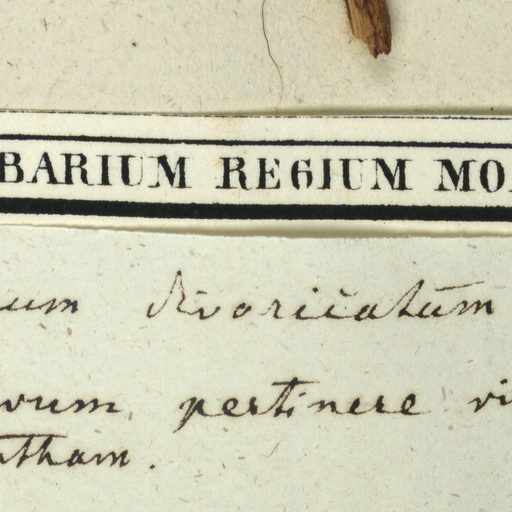 BARIUM REGIUM MO
um divaricatum
vum pertinere vi
ntham.